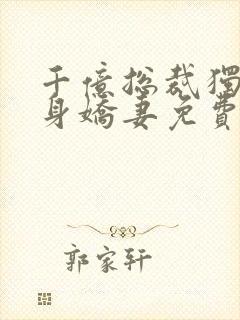 千億總裁獨
身嬌妻免費
郭家軒